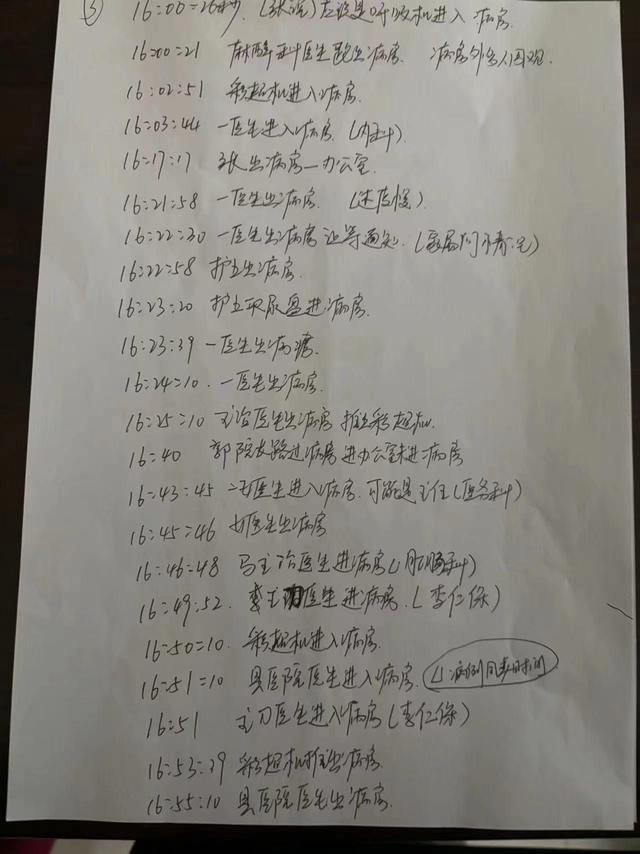 ③ 16:00=26秒 (张说)应该是呼吸机进入病房.
16:00:21 麻醉科医生跑出病房. 病房外多人围观.
16:02:51 彩超机进入病房.
16:03:44 一医生进入病房.(内科)
16:17:17 张出病房一办公室.
16:21:58 一医生出病房.
16:22:30 一医生出病房让等通知.(家属问)
16:22:58 护士出病房.
16:23:20 护士取尿盘进病房.
16:23:39 一医生出病房.
16:24:10. 一医生出病房.
16:25=10 主治医生出病房 推出彩超机.
16=40 郭院长路过病房进办公室未进病房
16=43:45 二女医生进入病房.可能是主任(医务科)
16:45=46 女医生出病房
16:46=48 马主治医生进病房(肛肠科)
16:49:52. 李主刀医生进病房.(李仁保)
16=50=10. 彩超机进入病房.
16:51=10 县医院医生进入病房.
16:51 主刀医生进入病房(李仁保)
16:53:39 彩超机推出病房.
16=55:10 县医院医生出病房.